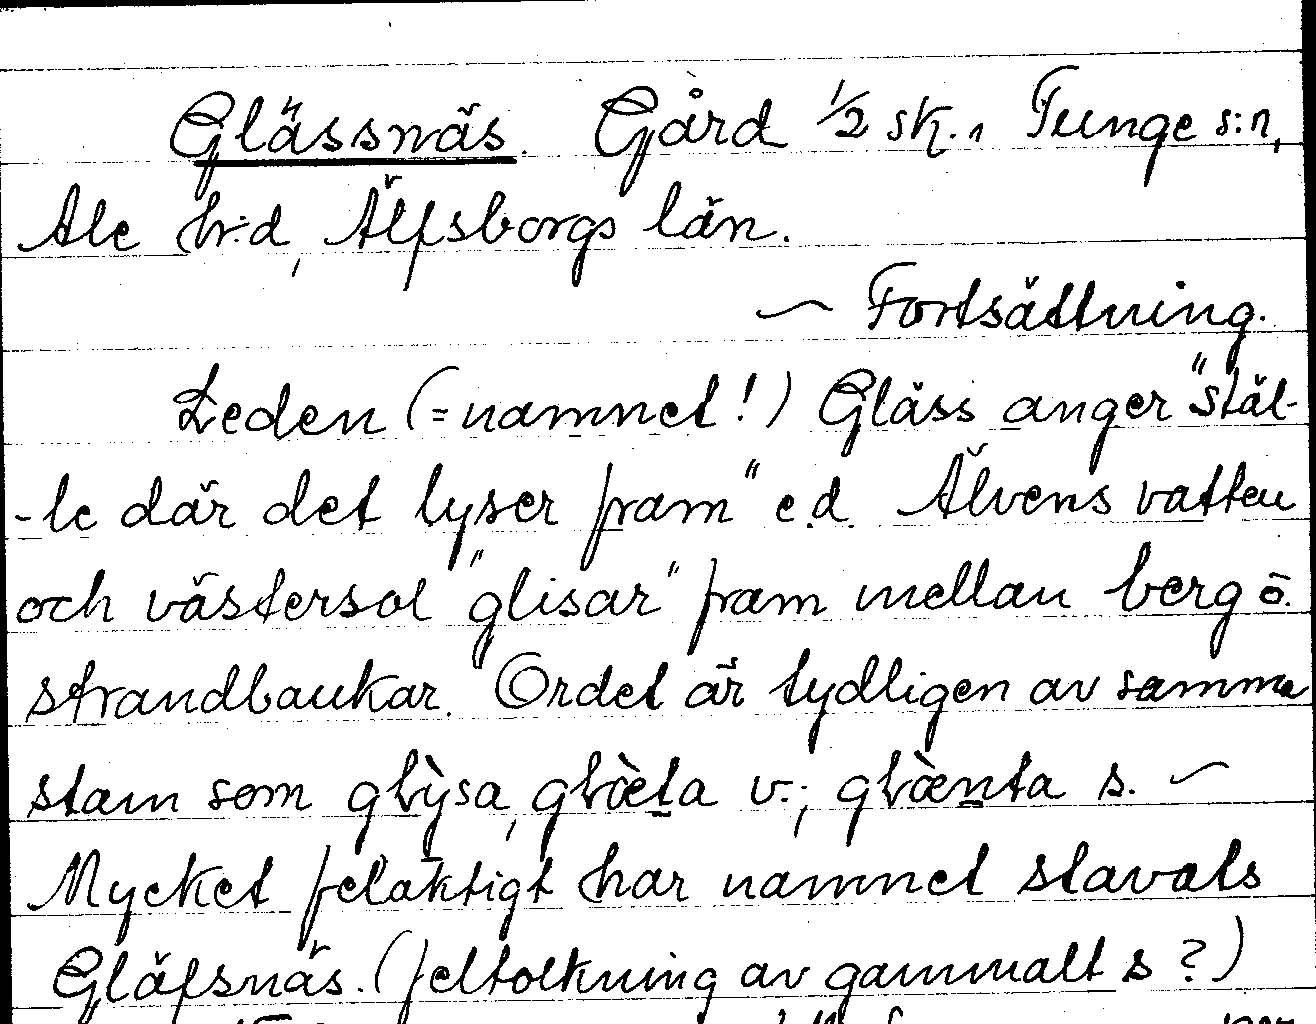 Glässnäs. Gård 1/2 sk., Tunge s:n,
Ale h:d, Älfsborgs län.
~ Fortsättning.
Leden (=namnet!) Gläss anger "stäl-
-le där det lyser fram" e.d. Älvens vatten
och västersol "glisar" fram mellan berg o.
strandbankar. Ordet är tydligen av samma
stam som v.; s. ~
Mycket felaktigt har namnet stavats
Gläfsnäs. (feltolkning av gammalt s?)